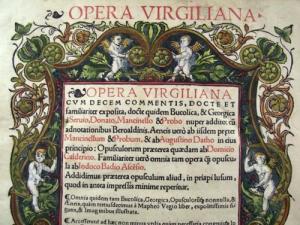 OPERA VIRGILIANA
OPERA VIRGILIANA
CVM DECEM COMMENTIS, DOCTE ET
familiariter exposita, docte quidem Bucolica, & Georgica
a Seruio, Donato, Mancinello & Probo nuper addito: cū
adnotationibus Beroaldinis. Aeneis uero ab iisdem præter
Mancinellum & Probum, & ab Augustino Datho in eius
principio: Opusculorum præterea quædam ab Domitio
Calderino. Familiariter uero omnia tam opera q̃ opuscu
la ab Iodoco Badio Ascensio.
Addidimus præterea opusculum aliud, in priapi lusum,
quod in antea impressis minime reperitur.
Omnia quidem tam Bucolica, Georgica,
liber,
& imaginibus illustrata.